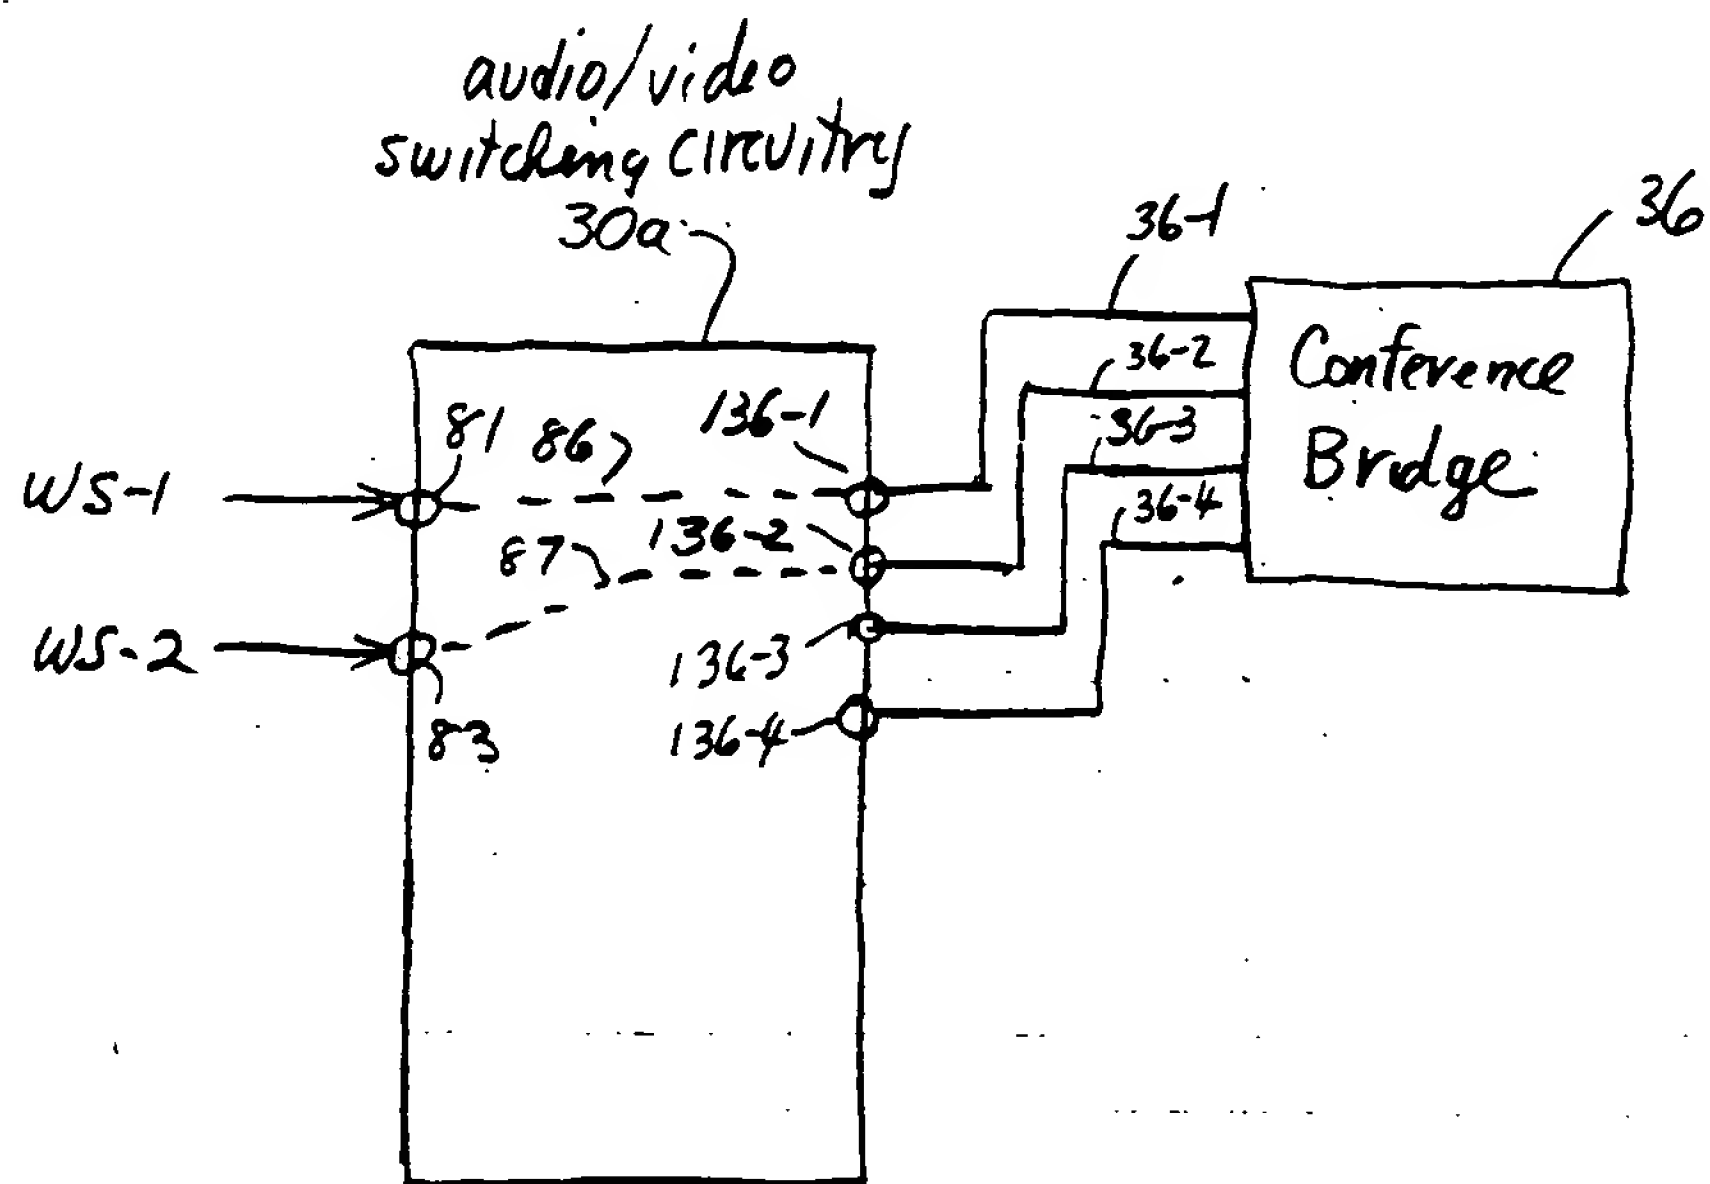 audio/video
switching circuitry
30a
36-1
36
36-2
Conference
Bridge
36-3
36-4
81
86
136-1
WS-1
87
136-2
WS-2
83
136-3
136-4